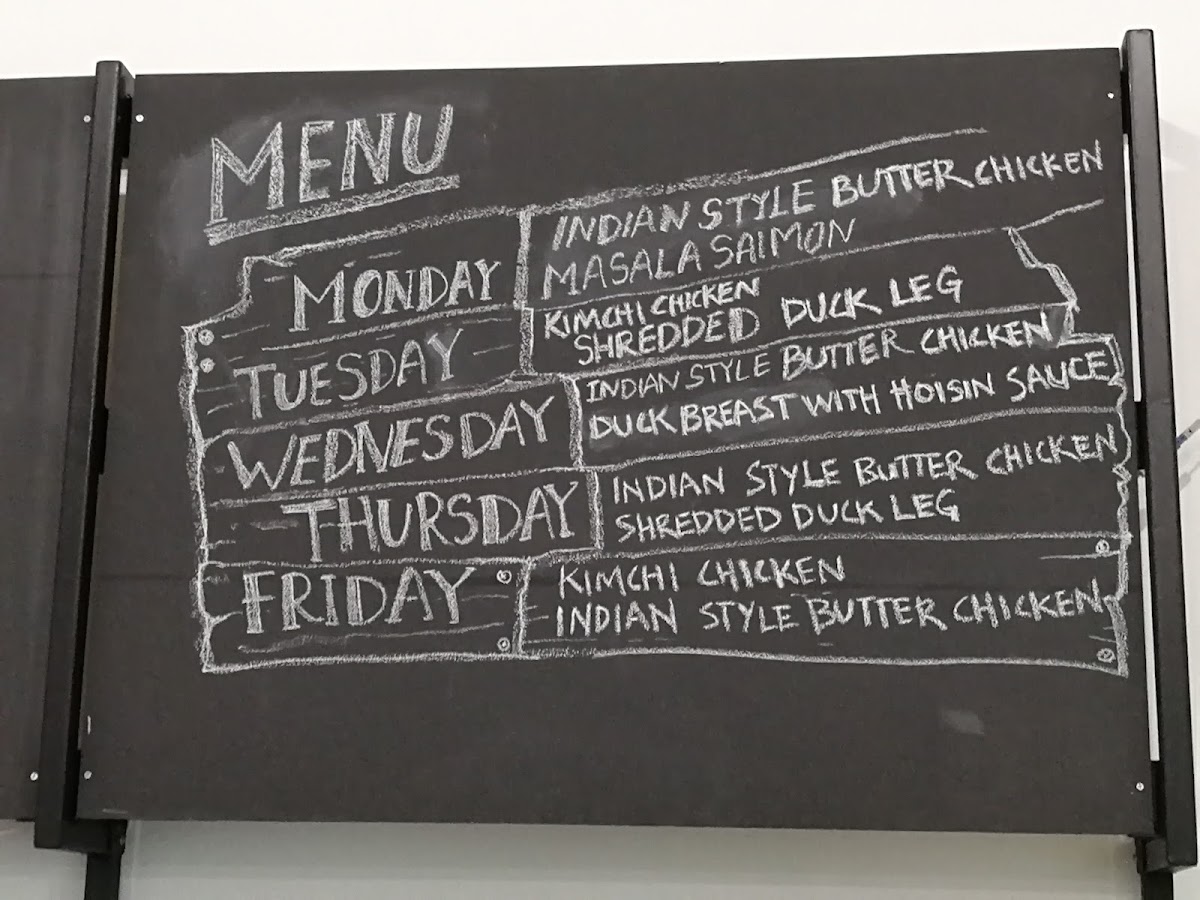 MENU
MONDAY
INDIAN STYLE BUTTER CHICKEN
MASALA SALMON
TUESDAY
KIMCHI CHICKEN
SHREDDED DUCK LEG
WEDNESDAY
INDIAN STYLE BUTTER CHICKEN
DUCK BREAST WITH HOISIN SAUCE
THURSDAY
INDIAN STYLE BUTTER CHICKEN
SHREDDED DUCK LEG
FRIDAY
KIMCHI CHICKEN
INDIAN STYLE BUTTER CHICKEN